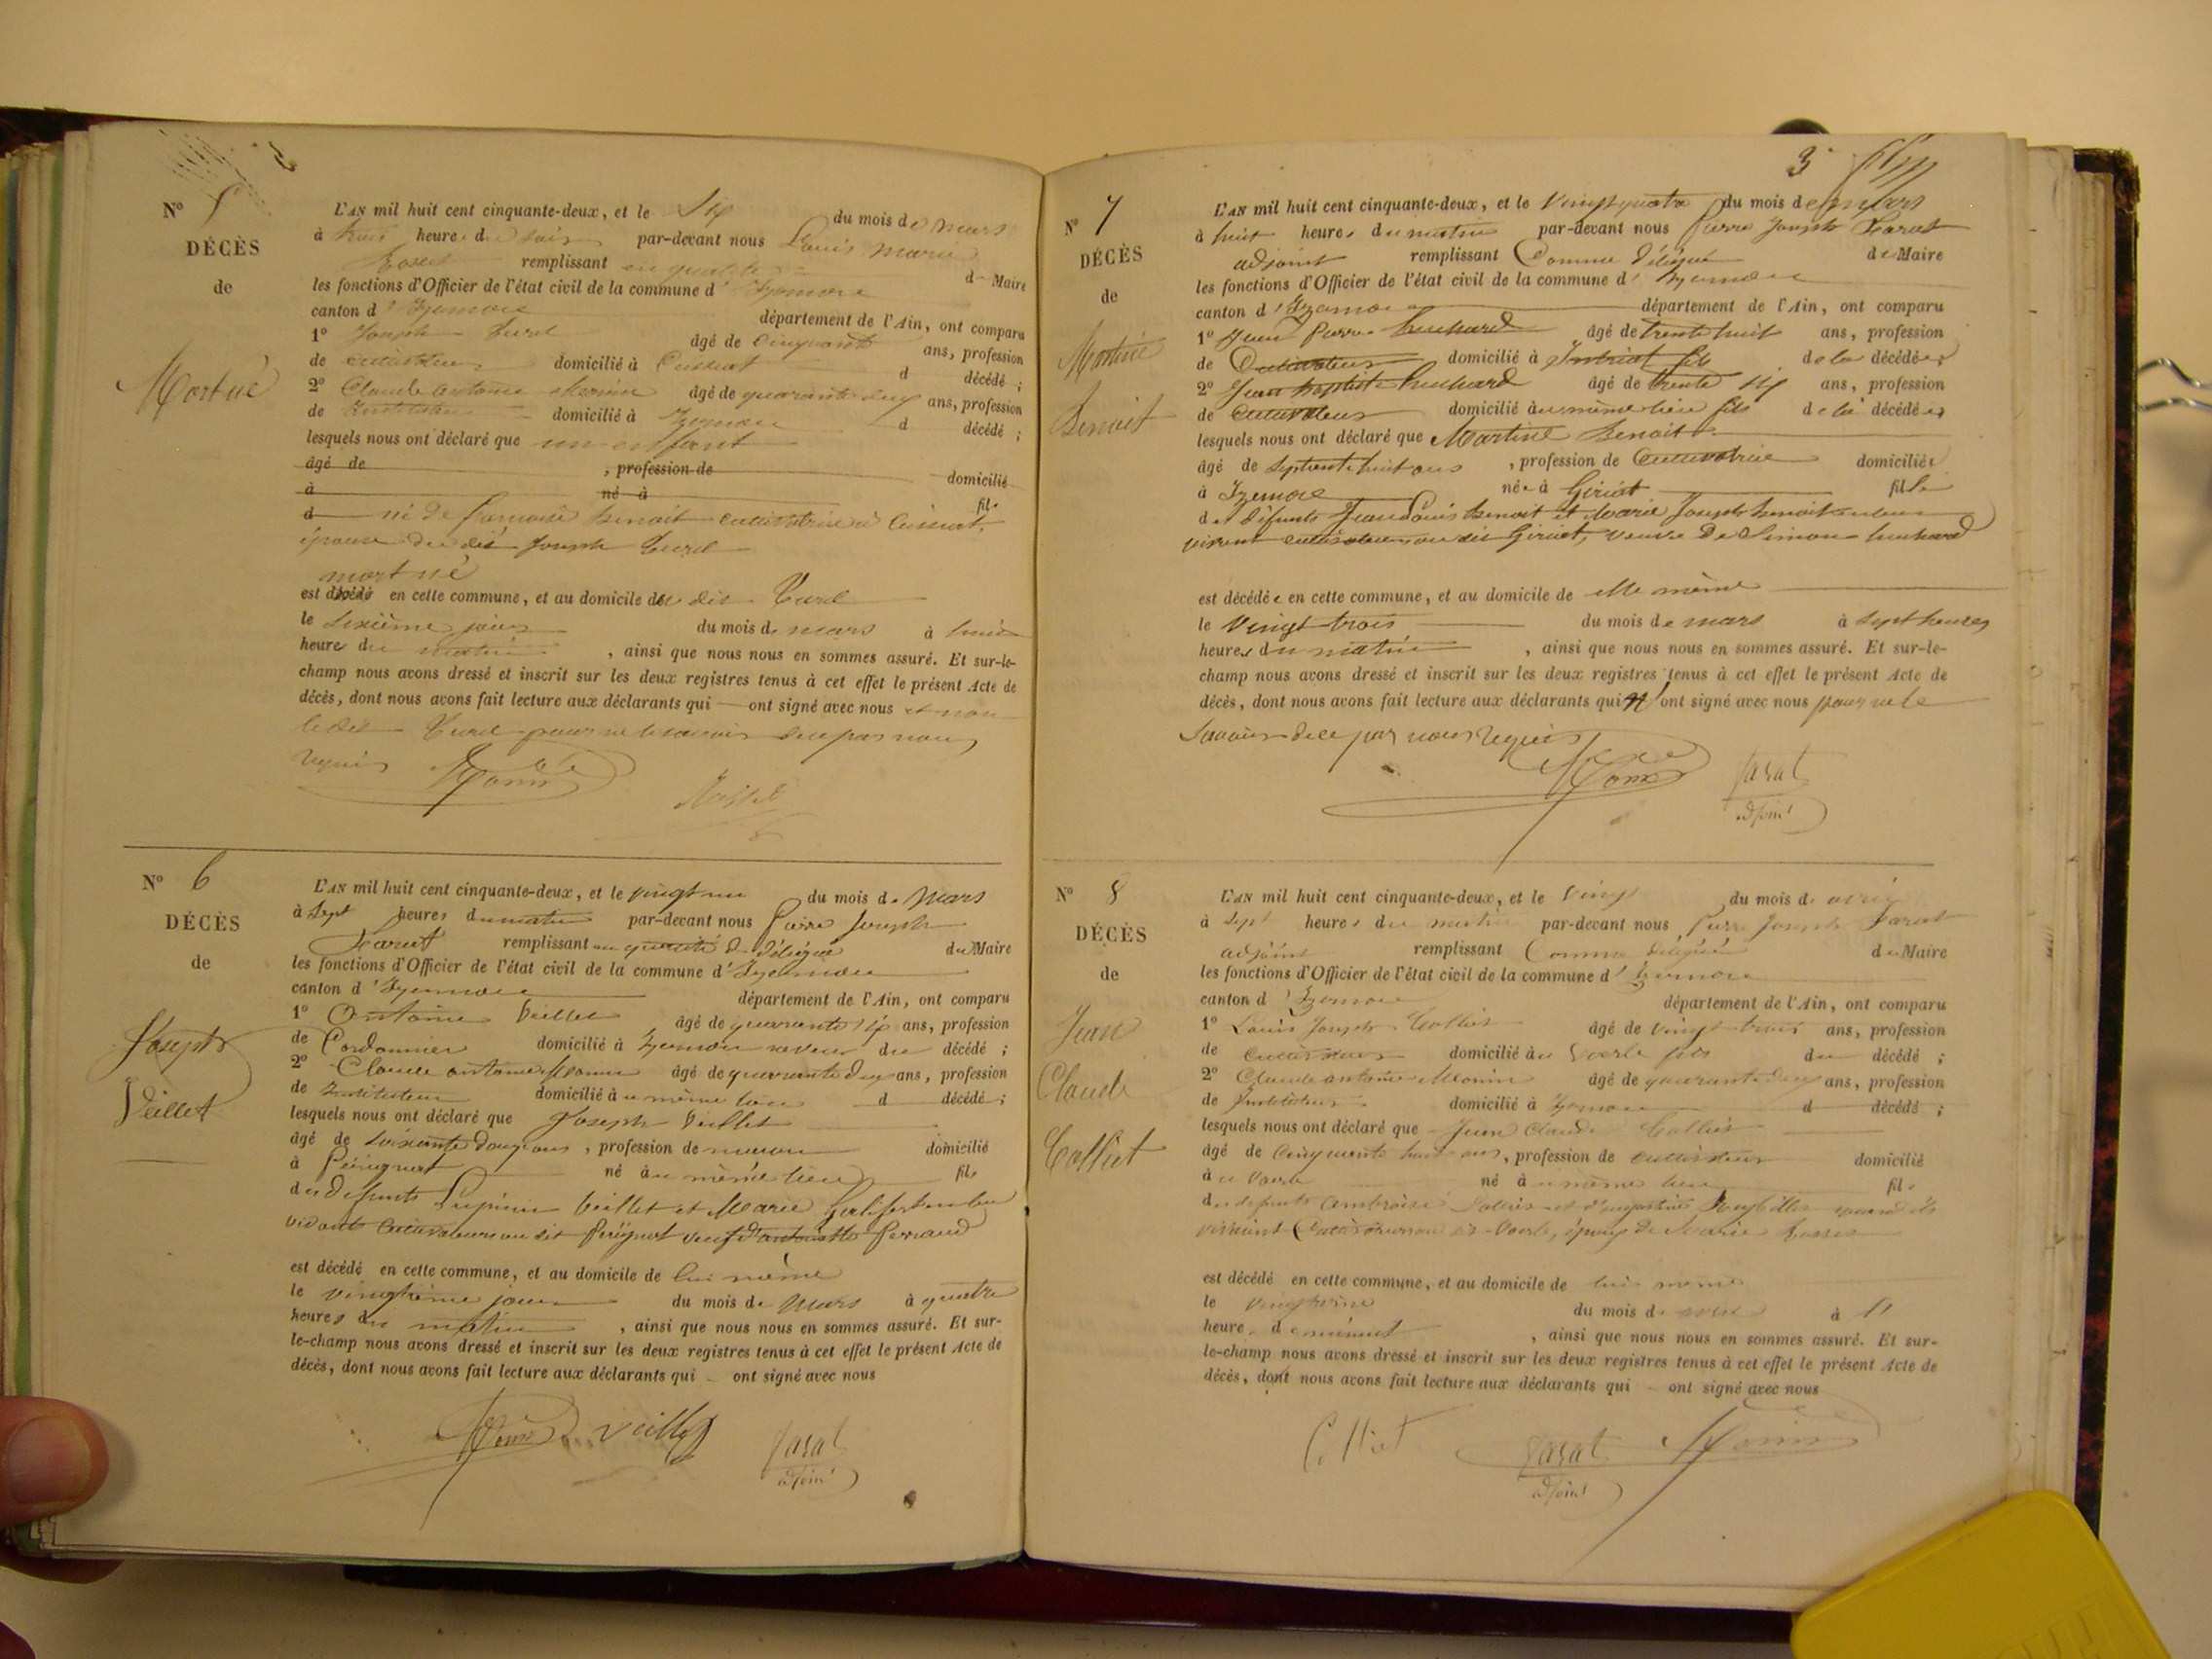 N° 5
DÉCÈS
de
Mort né
L'AN mil huit cent cinquante-deux, et le six du mois de mars
à heure du soir par-devant nous Louis marie
remplissant en qualité d Maire
les fonctions d'Officier de l'état civil de la commune d'Izernore
canton d'Izernore département de l'Ain, ont comparu
1° Joseph âgé de cinquante ans, profession
de cultivateur domicilié à Ceissiat d décédé ;
2° Claude antoine Monin âgé de quarante deux ans, profession
de Instituteur domicilié à Izernore d décédé ;
lesquels nous ont déclaré que un enfant
âgé de , profession de domicilié
à né à fils
d né de françoise Benoit cultivatrice à Ceissiat,
épouse du dit Joseph
mort né
est décédé en cette commune, et au domicile du dit
le sixième jour du mois de mars à
heure du matin , ainsi que nous nous en sommes assuré. Et sur-le-
champ nous avons dressé et inscrit sur les deux registres tenus à cet effet le présent Acte de
décès, dont nous avons fait lecture aux déclarants qui ont signé avec nous et non
le dit pour ne le savoir de ce par nous
requis Monin
N° 6
DÉCÈS
de
Joseph
Veillet
L'AN mil huit cent cinquante-deux, et le vingt un du mois de Mars
à sept heures du matin par-devant nous Pierre Joseph
remplissant en qualité de délégué du Maire
les fonctions d'Officier de l'état civil de la commune d'Izernore
canton d'Izernore département de l'Ain, ont comparu
1° Antoine Veillet âgé de quarante six ans, profession
de Cordonnier domicilié à Izernore neveu du décédé ;
2° Claude antoine Monin âgé de quarante deux ans, profession
de Instituteur domicilié au même lieu d décédé ;
lesquels nous ont déclaré que Joseph Veillet
âgé de soixante douze ans, profession de maçon domicilié
à Perignat né au même lieu fils
des défunts Veillet et Marie
vivants cultivateurs au dit Perignat veuf d'antoinette Perraud
est décédé en cette commune, et au domicile de lui même
le vingtième jour du mois de Mars à quatre
heures du matin , ainsi que nous nous en sommes assuré. Et sur-
le-champ nous avons dressé et inscrit sur les deux registres tenus à cet effet le présent Acte de
décès, dont nous avons fait lecture aux déclarants qui ont signé avec nous
Monin Veillet adjoint
3
N° 7
DÉCÈS
de
Martine
Benoit
L'AN mil huit cent cinquante-deux, et le vingt quatre du mois de mars
à huit heures du matin par-devant nous Pierre Joseph
adjoint remplissant Comme délégué du Maire
les fonctions d'Officier de l'état civil de la commune d'Izernore
canton d'Izernore département de l'Ain, ont comparu
1° Jean Pierre âgé de trente huit ans, profession
de Cultivateur domicilié à Intriat fils de la décédée ;
2° Jean baptiste âgé de trente six ans, profession
de Cultivateur domicilié au même lieu fils de la décédée ;
lesquels nous ont déclaré que Martine Benoit
âgé de septante huit ans , profession de Cultivatrice domiciliée
à Izernore née à Giriat fille
des défunts Jean Louis Benoit et Marie Joseph Benoit
vivant cultivateurs au dit Giriat, veuve de Simon
est décédée en cette commune, et au domicile de elle même
le vingt trois du mois de mars à sept heures
heures du matin , ainsi que nous nous en sommes assuré. Et sur-le-
champ nous avons dressé et inscrit sur les deux registres tenus à cet effet le présent Acte de
décès, dont nous avons fait lecture aux déclarants qui n'ont signé avec nous pour ne le
savoir de ce par nous requis
Monin adjoint
N° 8
DÉCÈS
de
Jean
Claude
Colliet
L'AN mil huit cent cinquante-deux, et le vingt du mois de avril
à sept heures du matin par-devant nous Pierre Joseph
adjoint remplissant Comme délégué du Maire
les fonctions d'Officier de l'état civil de la commune d'Izernore
canton d'Izernore département de l'Ain, ont comparu
1° Louis Joseph Colliet âgé de vingt trois ans, profession
de cultivateur domicilié au Voerle fils du décédé ;
2° Claude antoine Monin âgé de quarante deux ans, profession
de Instituteur domicilié à Izernore d décédé ;
lesquels nous ont déclaré que Jean Claude Colliet
âgé de cinquante huit ans, profession de cultivateur domicilié
au Voerle né au même lieu fils
des défunts ambroise Colliet et
vivaient Cultivateurs au dit Voerle, époux de Marie
est décédé en cette commune, et au domicile de lui même
le du mois de avril à
heure de minuit , ainsi que nous nous en sommes assuré. Et sur-
le-champ nous avons dressé et inscrit sur les deux registres tenus à cet effet le présent Acte de
décès, dont nous avons fait lecture aux déclarants qui ont signé avec nous
Colliet Monin
adjoint